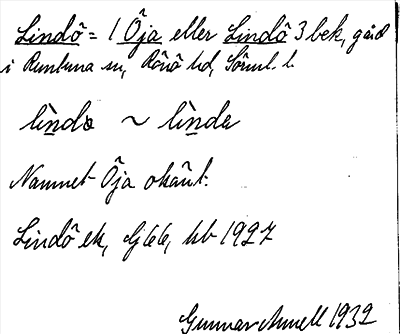 Lindö = 1 Öja eller Lindö 3 bek, gård
i Runtuna sn, Rönö hd, Sörml. l.
lìndə ~ lìnda
Namnet Öja okänt.
Lindö ek, Gj 66, kb 1927
Gunnar Amell 1932